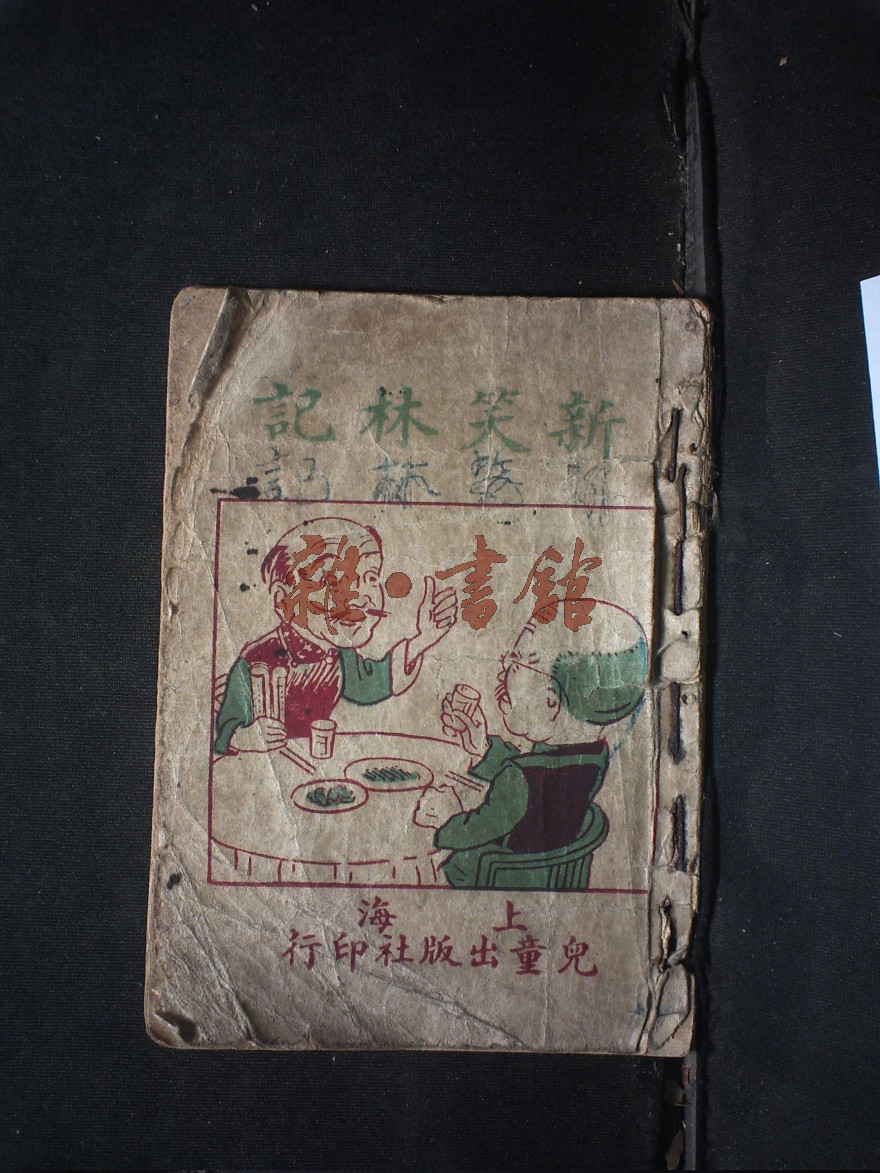 新笑林記
新笑林記
雜·書館
上海
兒童出版社印行